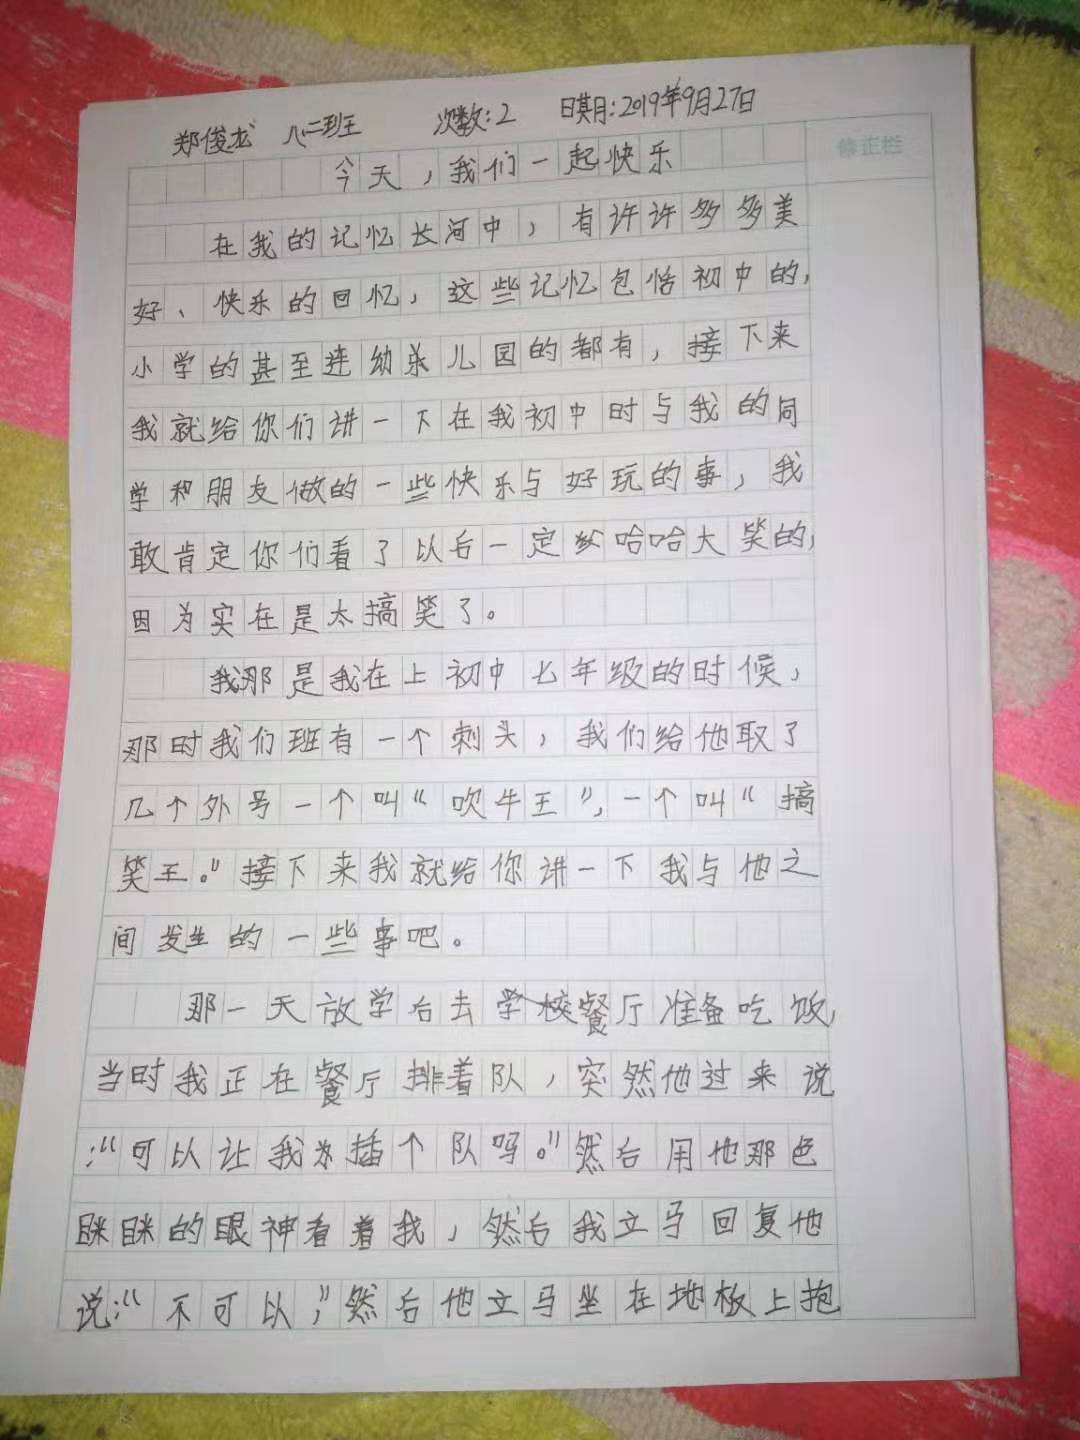 郑俊龙 八二班 次数:2 日期:2019年9月27日
修正栏
今天,我们一起快乐
在我的记忆长河中,有许许多多美
好、快乐的回忆,这些记忆包恬初中的,
小学的甚至连幼案儿园的都有,接下来
我就给你们讲一下在我初中时与我的同
学和朋友做的一些快乐与好玩的事,我
敢肯定你们看了以后一定哈哈大笑的,
因为实在是太搞笑了。
我那是我在上初中七年级的时候,
那时我们班有一个刺头,我们给他取了
几个外号一个叫“吹牛王”,一个叫“搞
笑王。”接下来我就给你讲一下我与他之
间发生的一些事吧。
那一天放学后去学校餐厅准备吃饭,
当时我正在餐厅排着队,突然他过来说
:“可以让我插个队吗。”然后用他那色
眯眯的眼神看着我,然后我立马回复他
说:“不可以,”然后他立马坐在地板上抱